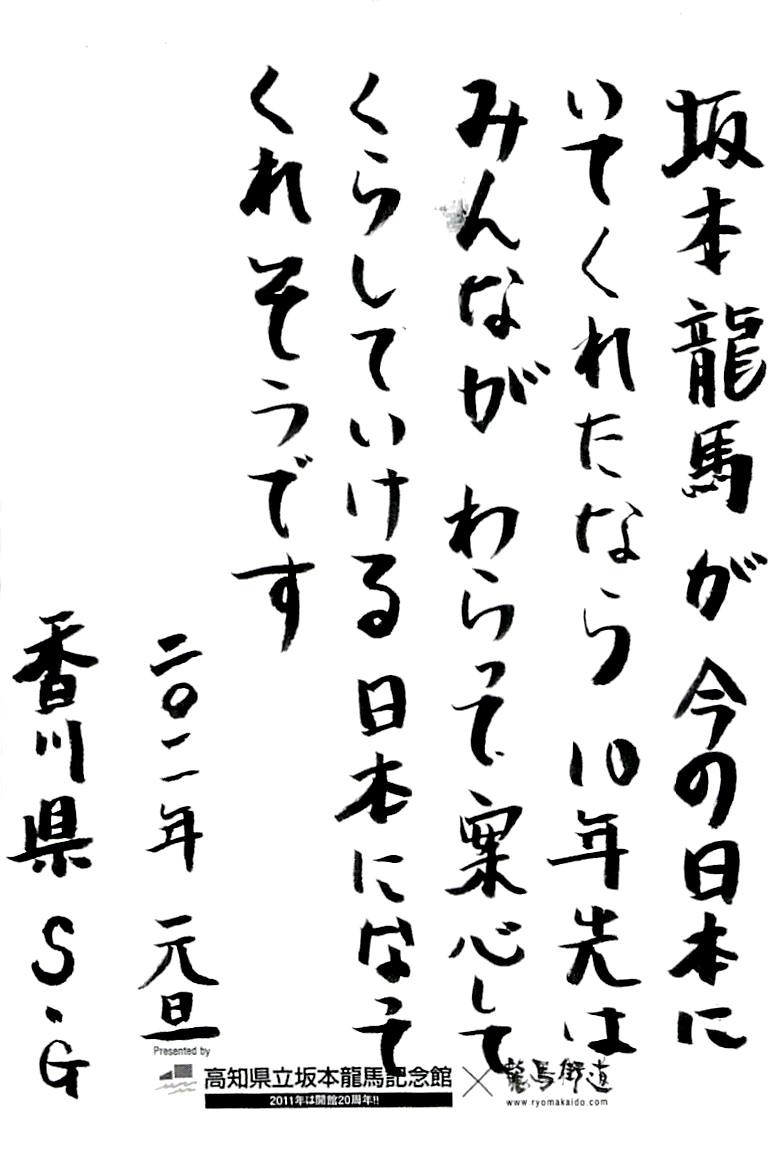 坂本龍馬が今の日本に
いてくれたなら 10年先は
みんなが わらって案心して
くらしていける日本になって
くれそうです
二〇一一年 元旦
香川県 S.G
Presented by
高知県立坂本龍馬記念館
2011年は開館20周年!!
×
龍馬街道
www.ryomakaido.com